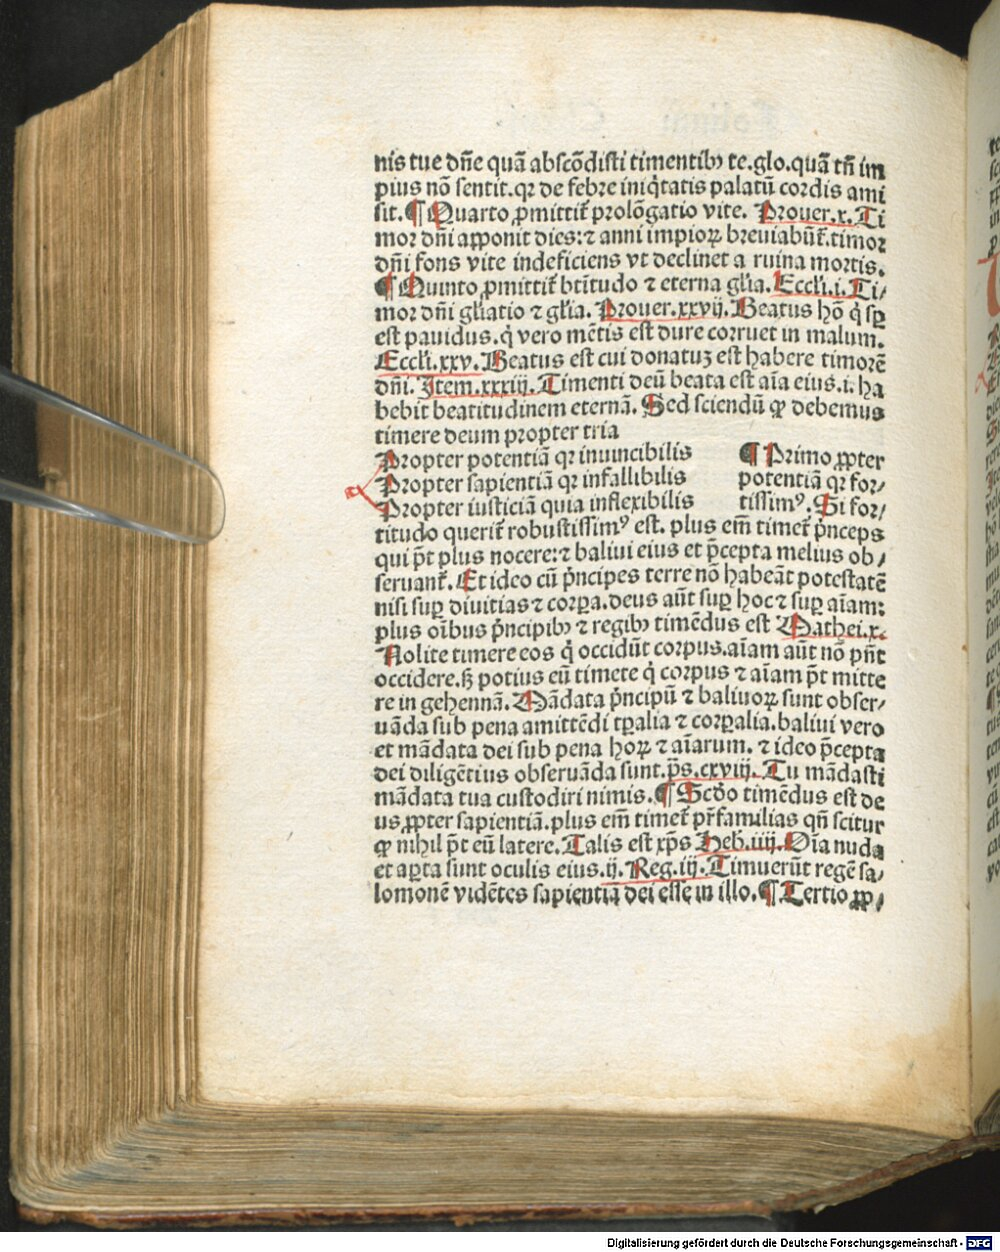 nis tue dn̄e quā abscōdisti timentibꝫ te.glo.quā tn̄ im
pius nō sentit.qꝛ de febre iniq̇tatis palatū cordis ami
sit.¶ Quarto ꝓmittit̃ prolōgatio vite. Prouer.x.Ti
mor dn̄i apponit dies:⁊ anni impioꝝ breuiabūt̃.timor
dn̄i fons vite indeficiens vt declinet a ruina mortis.
¶ Quinto ꝓmittit̃ btītudo ⁊ eterna gl̄ia. Eccl̄i.i.Ti/
mor dn̄i gl̄iatio ⁊ gl̄ia. Prouer.xxvij.Beatus hō q̇ sꝑ
est pauidus.q̇ vero mētis est dure corruet in malum.
Eccl̄i.xxv.Beatus est cui donatuꝫ est habere timorē
dn̄i. Item.xxxiij.Timenti deū beata est aīa eius.i.ha
bebit beatitudinem eternā. Sed sciendū ꝙ debemus
timere deum propter tria
Propter potentiā qꝛ inuincibilis
Propter sapientiā qꝛ infallibilis
Propter iusticiā quia inflexibilis
¶ Primo ꝓpter
potentiā qꝛ for/
tissimꝰ. Si for/
titudo querit̃ robustissimꝰ est. plus em̄ timet̃ p̄nceps
qui p̄t plus nocere:⁊ baliui eius et p̄cepta melius ob/
seruant̃. Et ideo cū p̄ncipes terre nō habeāt potestatē
nisi suꝑ diuitias ⁊ corꝑa.deus aūt suꝑ hoc ⁊ suꝑ aīam:
plus oībus p̄ncipibꝫ ⁊ regibꝫ timēdus est Mathei.x.
Nolite timere eos q̇ occidūt corpus.aīam aūt nō pn̄t
occidere.sꝫ potius eū timete q̇ corpus ⁊ aīam p̄t mitte
re in gehennā. Mādata p̄ncipū ⁊ baliuoꝝ sunt obser/
uāda sub pena amittēdi tꝑalia ⁊ corꝑalia.baliui vero
et mādata dei sub pena hoꝝ ⁊ aīarum. ⁊ ideo p̄cepta
dei diligētius obseruāda sunt.ps̄.cxviij. Tu mādasti
mādata tua custodiri nimis.¶ Scd̄o timēdus est de
us ꝓpter sapientiā.plus em̄ timet̃ pr̄familias qn̄ scitur
ꝙ nihil p̄t eū latere. Talis est xp̄s Heb̄.iiij.Oīa nuda
et aꝑta sunt oculis eius.ij. Reg.iij.Timuerūt regē sa/
lomonē vidētes sapientiā dei esse in illo.¶ Tertio ꝓp/
Digitalisierung gefördert durch die Deutsche Forschungsgemeinschaft - DFG